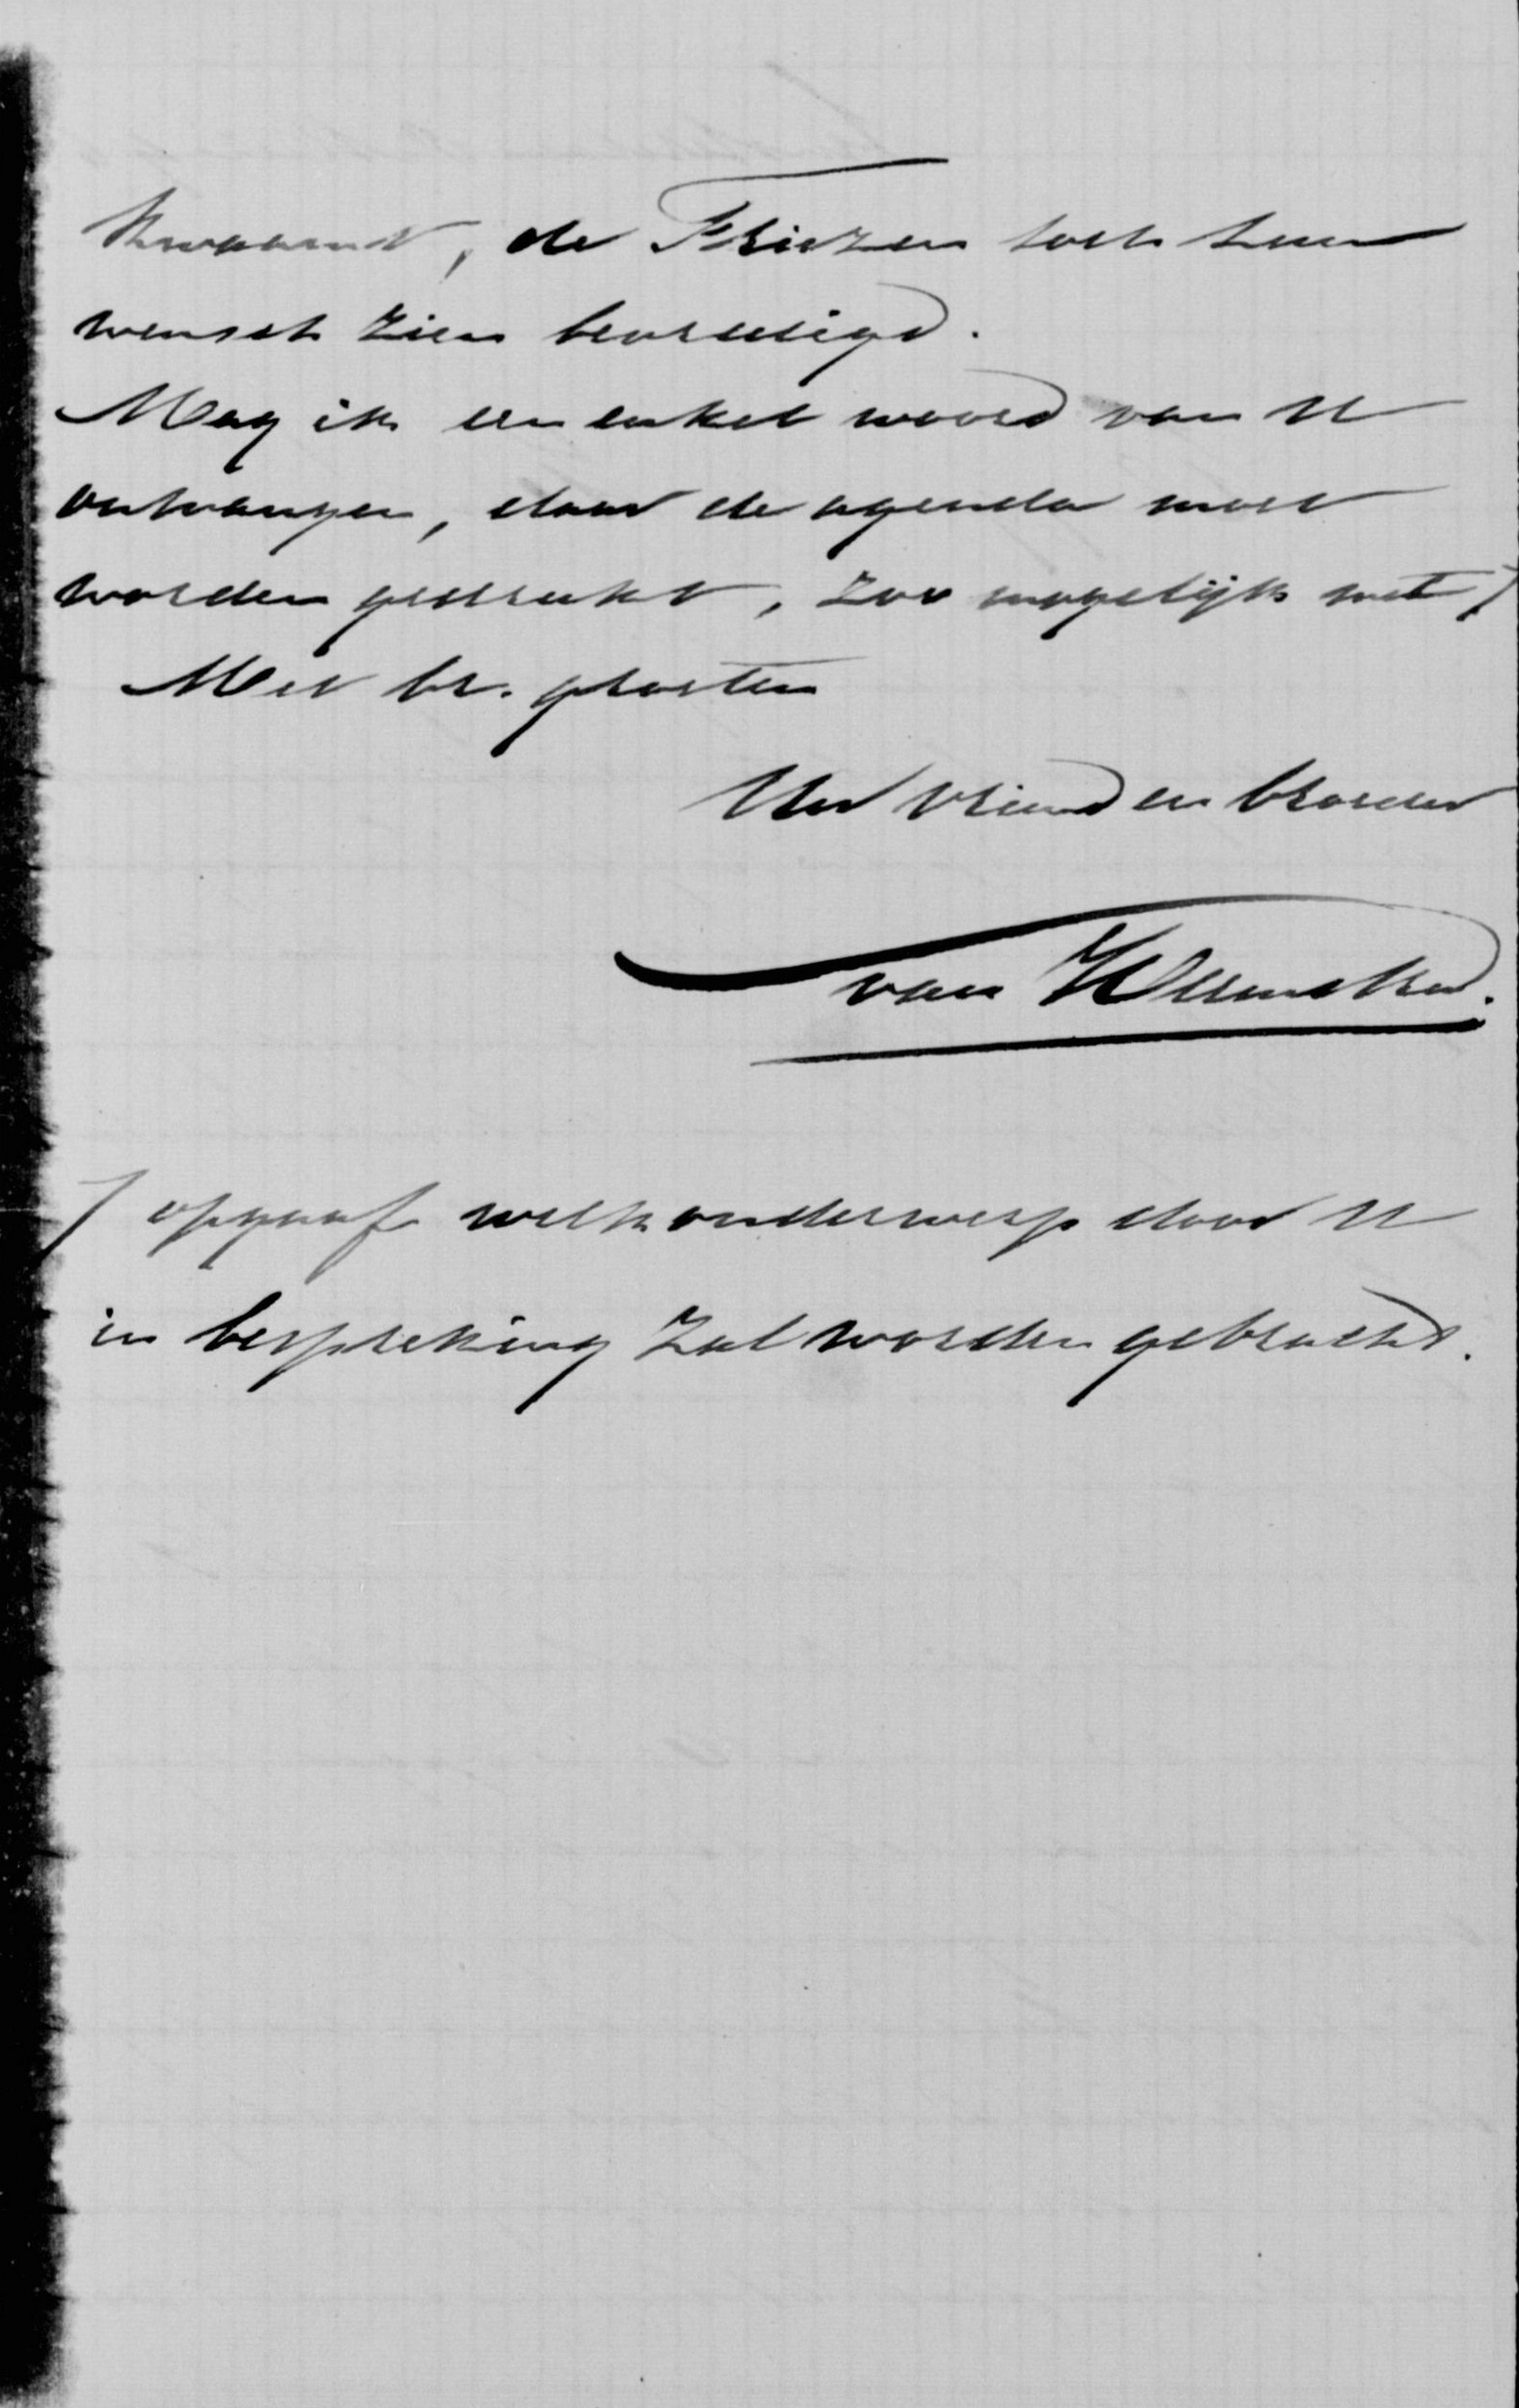 kwaamt, de Friezen toch hun
wensch zien bevredigd.
Mag ik een enkel woord van U
ontvangen, daar de agenda moet
worden gedrukt, zoo mogelijk met ⌡
Met br. groeten
Uw vriend en broeder
van
⌡ opgaaf welk onderwerp door U
in bespreking zal worden gebracht.